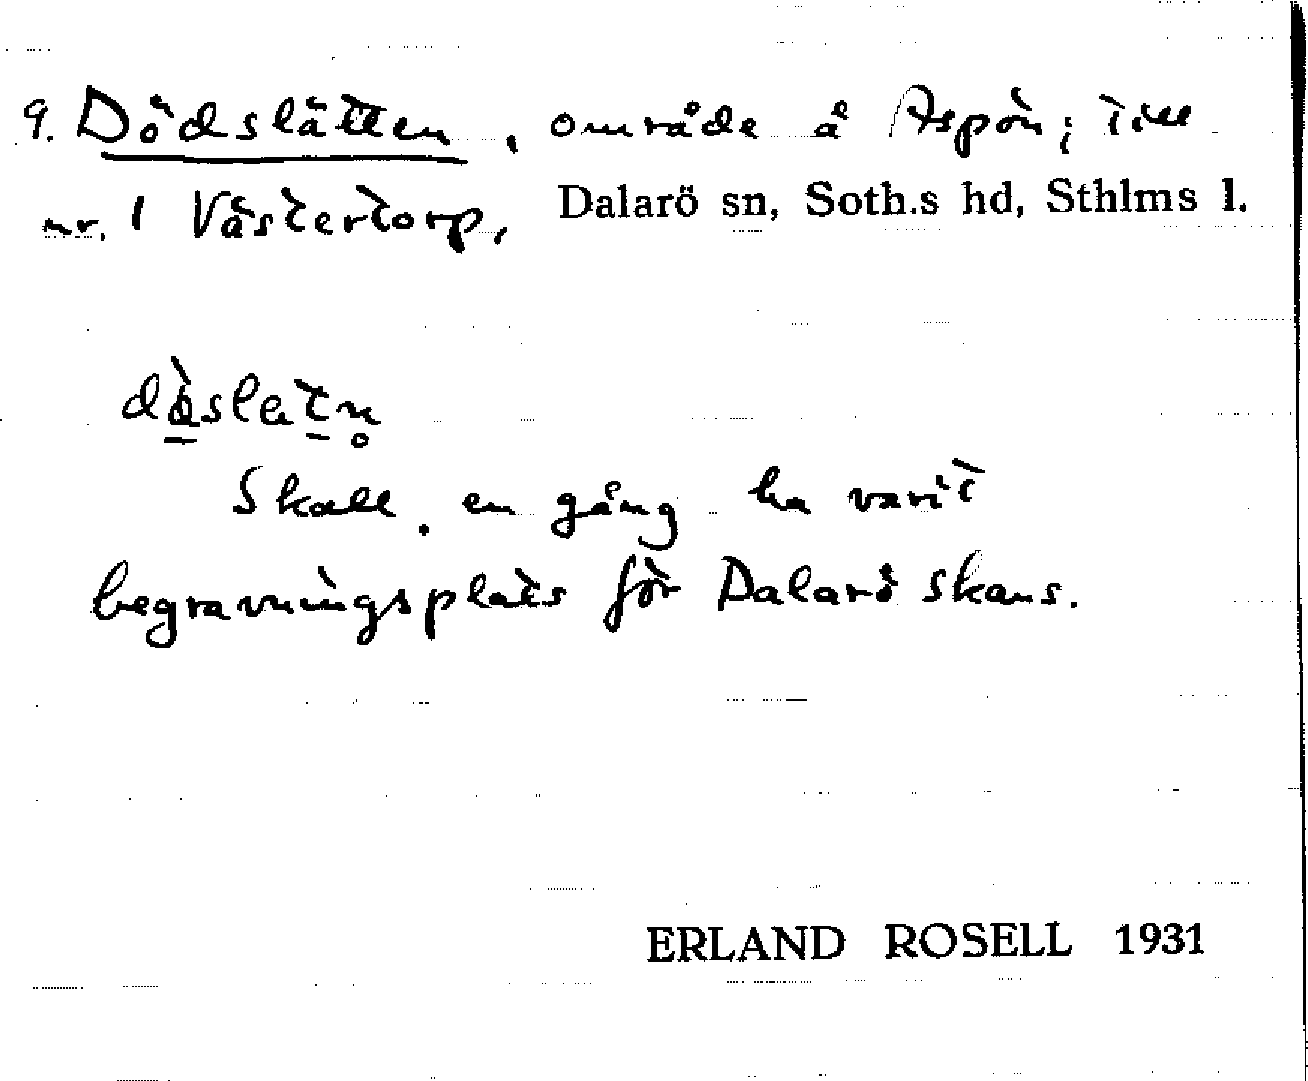 9. Dödslätten, område å Aspön; till
nr. 1 Västertorp, Dalarö sn, Soth.s hd, Sthlms l.
dö̀slatn̥
Skall en gång ha varit
begravningsplats för Dalarö skans.
ERLAND ROSELL 1931